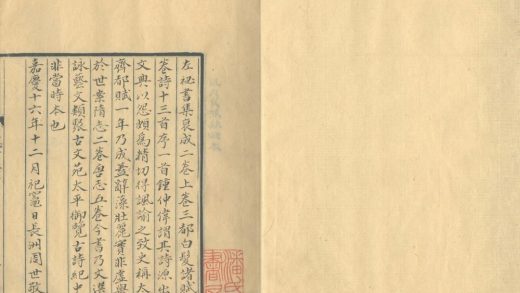 左祕書集裒成二卷上卷三都白髮諸賦
卷詩十三首序一首鍾仲偉謂其詩源出
文典以怨頗為精切得諷諭之致史稱太
齊都賦一年乃成蓋辭藻壯麗實非虛譽
於世案隋志二卷唐志五卷今書乃文選
詠藝文類聚古文苑太平御覽古詩紀中
非當時本也
嘉慶十六年十二月祀竈日長洲周世敬